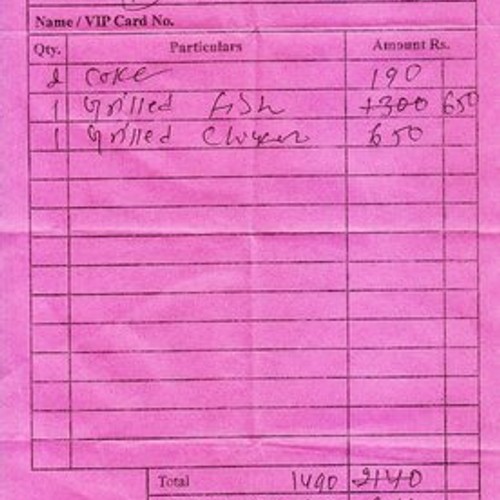 Name / VIP Card No.
Qty. Particulars Amount Rs.
2 Coke 190
1 Grilled Fish 650
1 Grilled Chicken 650
Total 1490 2140